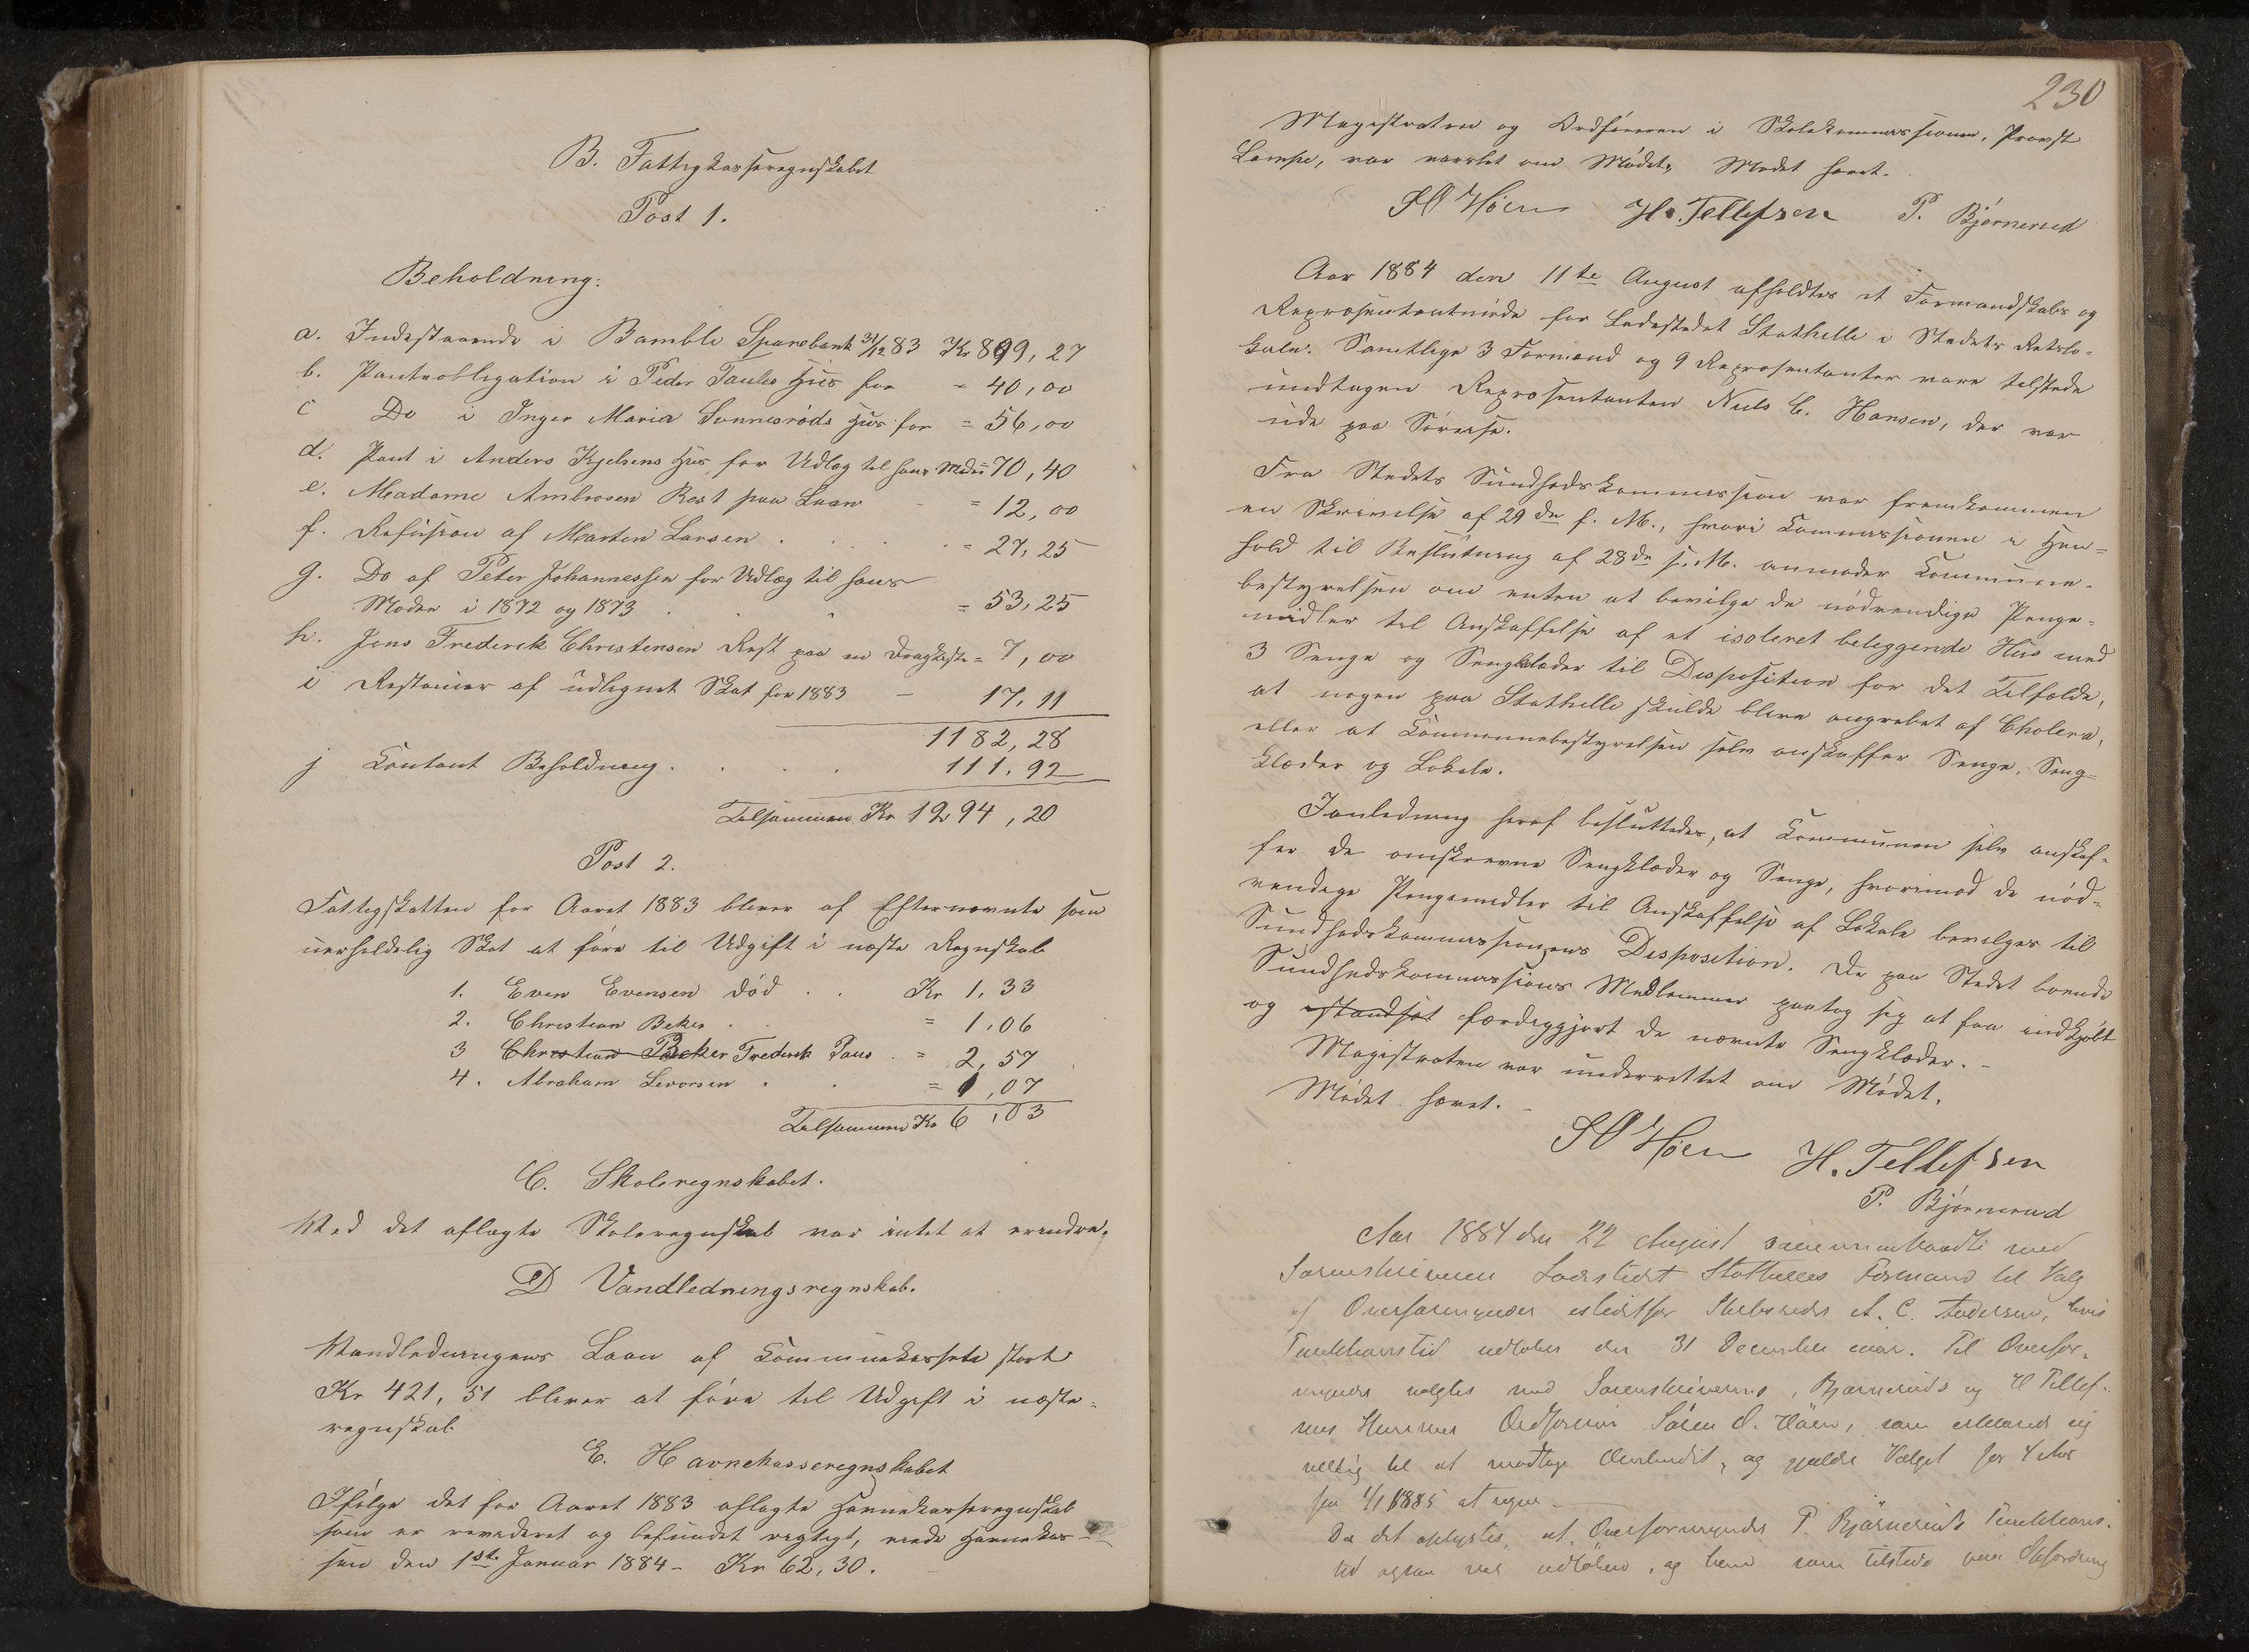 B. Fattigkasseregnskabet
Post 1.
Beholdning:
a. Indestaaende i Bamble Sparebank 31/12 83 Kr 899,27
b. Panteobligation i Peder Taules Hus for - 40,00
c Do i Inger Maria Sunnesröds Hus for = 56,00
d. Pant i Anders Kjelsens Hus for Udlæg til hans Moder = 70,40
e. Madame Ambrosen Rest paa Laan - = 12,00
f. Refusion af Marten Larsen . . . . = 27,25
g. Do af Peter Johannessen for Udlæg til hans
Moder i 1872 og 1873 . . = 53,25
h. Jens Frederik Christensen Rest paa en Dragkiste = 7,00
i Restancer af udlignet Skat for 1883 - 17,11
1182,28
j Contant Beholdning . . . . 111,92
Tilsammen Kr 1294,20
Post 2.
Fattigskatten for Aaret 1883 bliver af Efternævnte som
uerholdelig Skat at före til Udgift i næste Regnskab
1. Even Evensen död . . Kr 1,33
2. Christian Beker . = 1,06
3 Christian Becker Frederik Paus . = 2,57
4. Abraham Levorsen . . = 1,07
Tilsammen Kr 6,03
C. Skoleregnskabet.
Med det aflagte Skoleregnskab var intet at erindre.
D Vandledningsregnskab.
Vandledningens Laan af Communekassete stort
Kr 421,51 bliver at före til Udgift i næste
regnskab
E. Havnekasseregnskabet
Ifölge det for Aaret 1883 aflagte Havnekasseregnskab
som er revideret og befundet rigtigt, eiede Havnekas-
sen den 1ste Januar 1884 - Kr 62,30.
230
Magistraten og Ordföreren i Skolekommissionen, Provst
Lampe, var varslet om Mödet. Mödet hævet.
S O Höen H. Tellefsen P. Björnerud
Aar 1884 den 11te August afholdtes et Formandskabs og
Repræsentantmöde for Ladestedet Stathelle i Stedets Retslo-
kale. Samtlige 3 Formænd og 9 Repræsentanter vare tilstede
undtagen Repræsentanten Niels C. Hansen, der var
ude paa Söreise.
Fra Stedets Sundhedskommission var fremkommen
en Skrivelse af 29de f. M., hvori Commissionen i Hen-
hold til Beslutning af 28de s. M. anmoder Commune-
bestyrelsen om enten at bevilge de nödvendige Penge-
midler til Anskaffelse af et isoleret beliggende Hus med
3 Senge og Sengklæder til Disposition for det Tilfælde,
at nogen paa Stathelle skulde blive angrebet af Cholera,
eller at Communebestyrelsen selv anskaffer Senge, Seng-
klæder og Lokale.
Ianledning heraf besluttedes, at Communen selv anskaf-
fer de omskrevne Sengklæder og Senge, hvorimod de nöd-
vendige Pengemidler til Anskaffelse af Lokale bevilges til
Sundhedskommissionens Disposition. De paa Stedet boende
Sundhedskommissions Medlemmer paatog sig at faa indkjöbt
og istandsat færdiggjort de nævnte Sengklæder. -
Magistraten var underrettet om Mödet.
Mödet hævet. -
S O Höen H. Tellefsen
P. Björnerud
Aar 1884 den 22 August sammentraadte med
Sorenskriveren Ladestedet Stathelles Formænd til Valg
af Overformynder istedetfor Skibsreder A. C. Andersen, hvis
Funktionstid udlöber den 31 December næst. Til Overfor-
mynder valgtes med Sorenskriverens, Bjørneruds og H Tellef-
sens Stemmer Ordförer Sören O. Höen, som erklærede sig
villig til at modtage Ombudet, og gjælder Valget for 4 Aar
fra 1/1 1885 at regne. -
Da det oplystes, at Overformynder P. Björneruds Funktions-
tid ogsaa var udlöben, og han som tilstede paa Opfordring